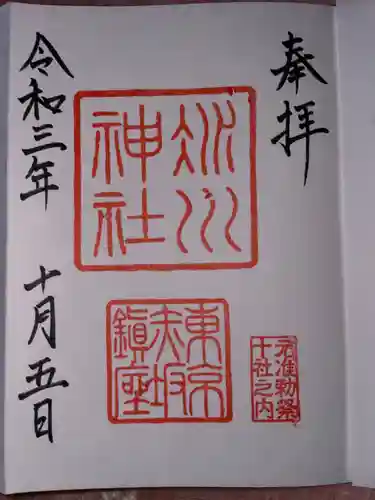 奉拝
氷川
神社
東京
赤坂
鎮座
元准勅祭
十社之内
令和三年 十月五日